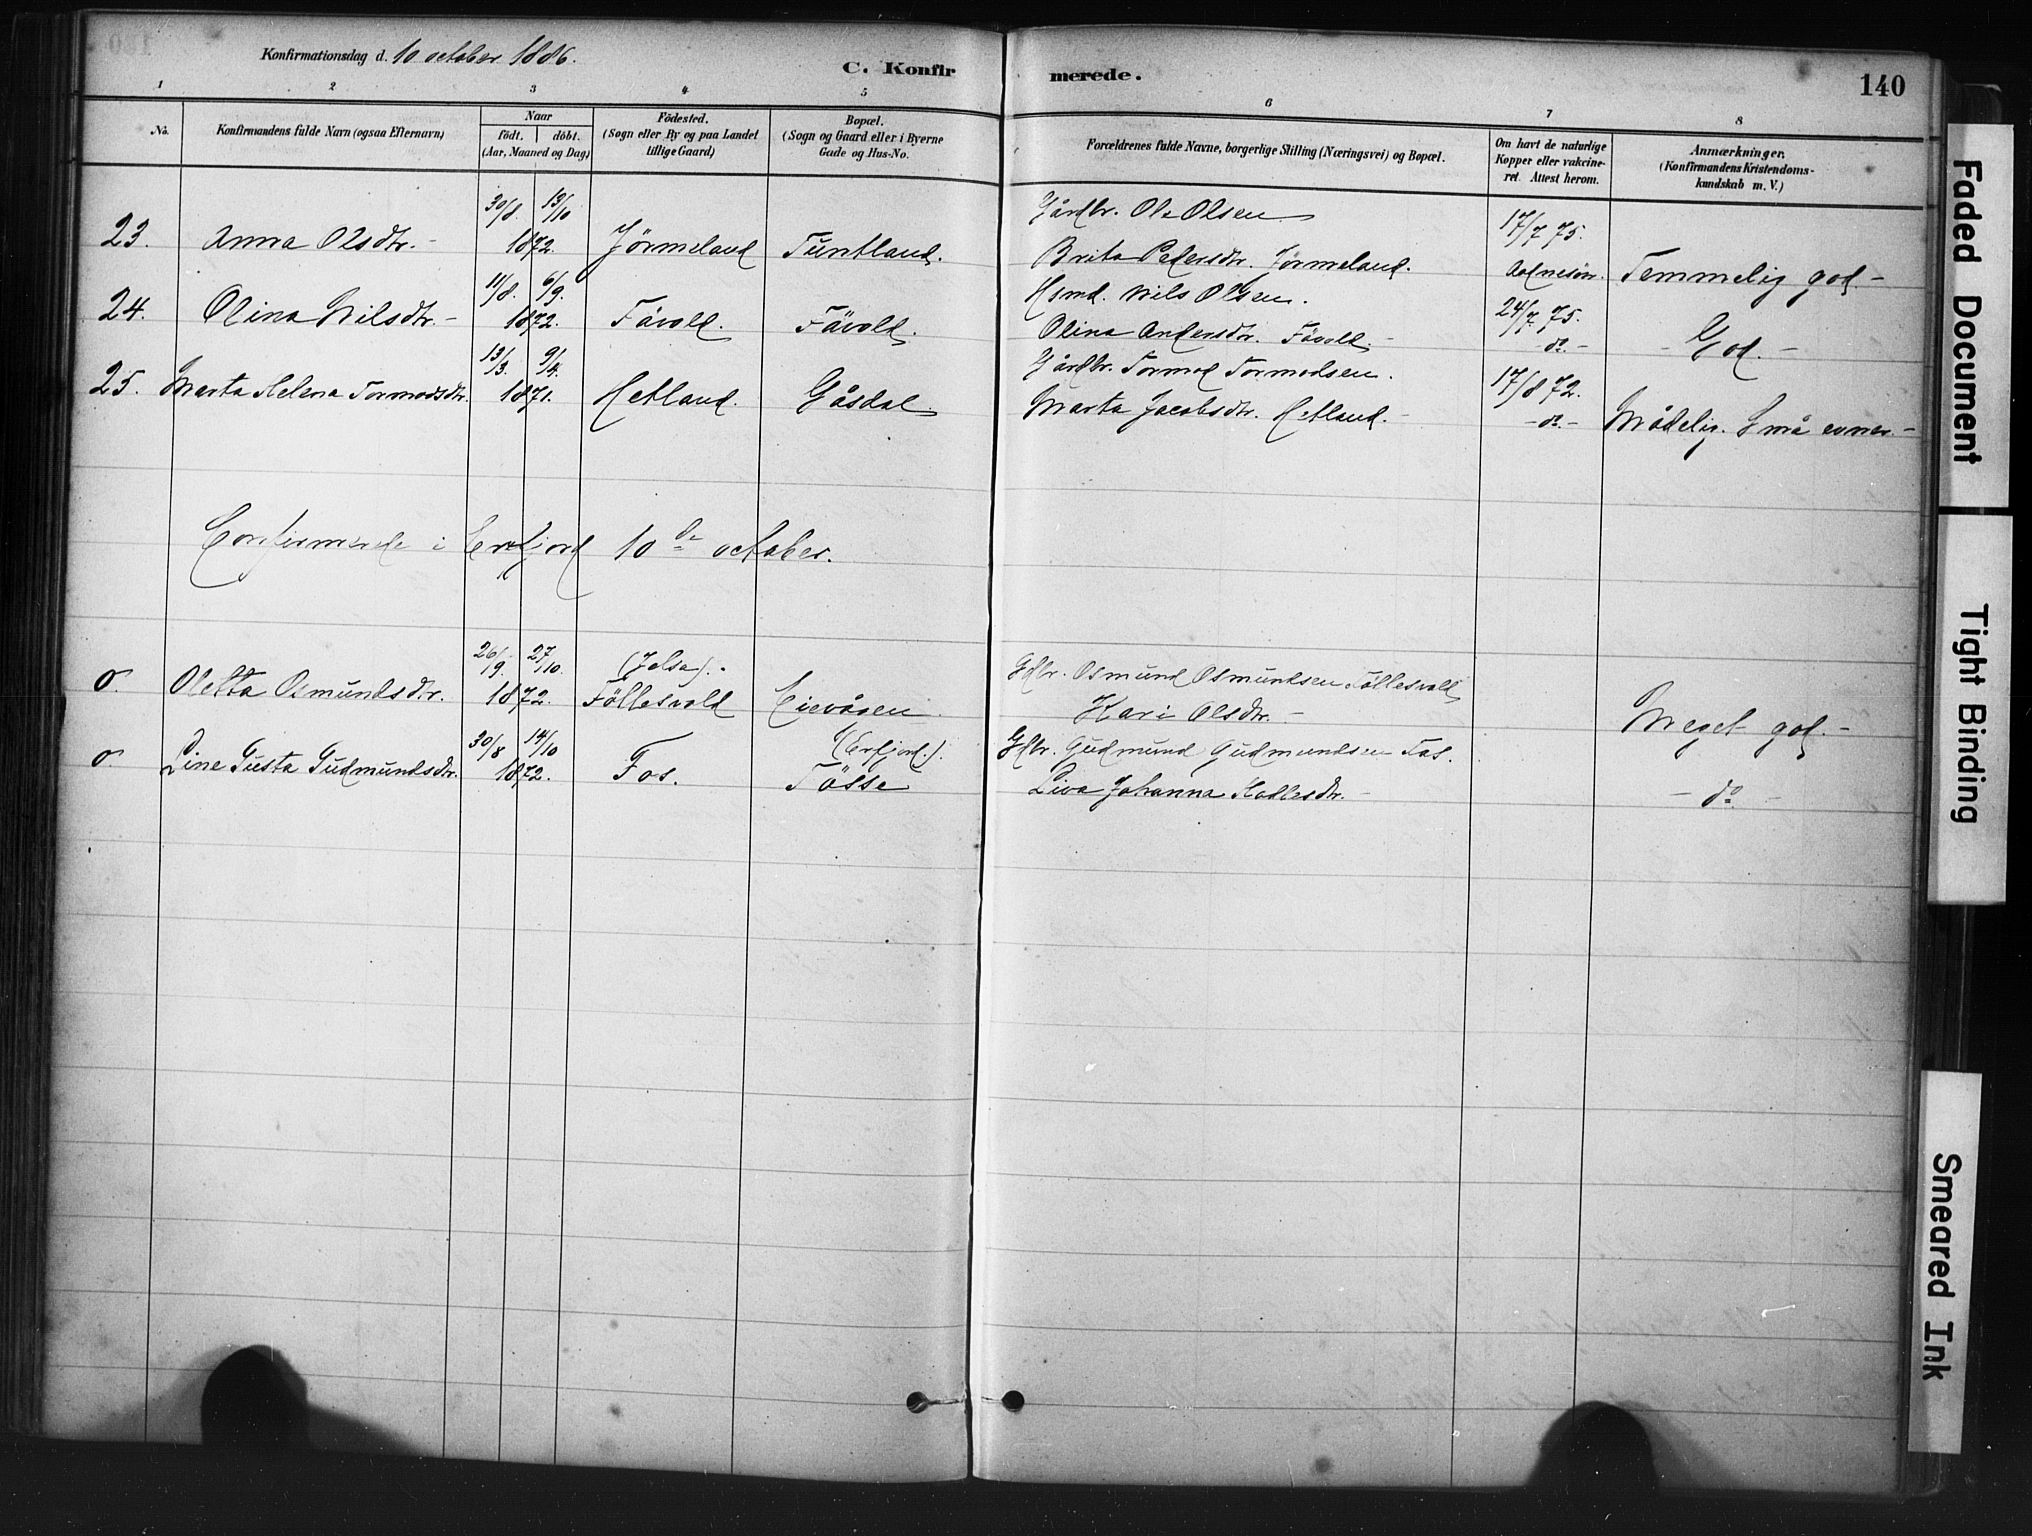 Konfirmationsdag d. 10 october 1886.
C. Konfirmerede.
140
1 2 3 4 5 6 7 8
No.
Konfirmandens fulde Navn (ogsaa Efternavn)
Naar
födt. döbt.
(Aar, Maaned og Dag)
Födested.
(Sogn eller By og paa Landet
tillige Gaard)
Bopæl.
(Sogn og Gaard eller i Byerne
Gade og Hus-No.
Forældrenes fulde Navne, borgerlige Stilling (Næringsvei) og Bopæl.
Om havt de naturlige
Kopper eller vakcine-
ret. Attest herom.
Anmærkninger.
(Konfirmandens Kristendoms-
kundskab m. V.)
30/8. 13/10 Gårdbr. Ole Olsen 17/7 75.
23. Anna Olsdtr.- 1872. Jörmeland Tuntland. Brita Pedersdtr. Jörmeland. Temmelig god-
11/8. 6/9. Hsmd. Nils Olsen. 24/7 75.
24. Olina Nilsdtr.- 1872. Fävold. Fävold. Olina Andersdtr. Fävold.- -do.- - God.-
13/3. 9/4. Gårdbr. Tormod Tormodsen. 17/8 72.
25. Marta Helena Tormodsdtr. 1871. Hetland. Gåsdal Marta Jacobsdtr. Hetland.- -do.- Mådelig. Små evner.-
Confirmerede i Erfjord 10de october.
26/9. 27/10. (Jelsa). Gdbr. Osmund Osmundsen Föllesvold
o. Oletta Osmundsdtr. 1872. Föllesvold Eievågen Kari Olsdtr.- Meget god.-
30/8 14/10 (Erfjord). Gdbr. Gudmund Gudmundsen Fos.
o. Line Gusta Gudmundsdtr. 1872. Fos. Tösse Liva Johanna Kolbesdtr.- - do -
Faded Document
Tight Binding
Smeared Ink